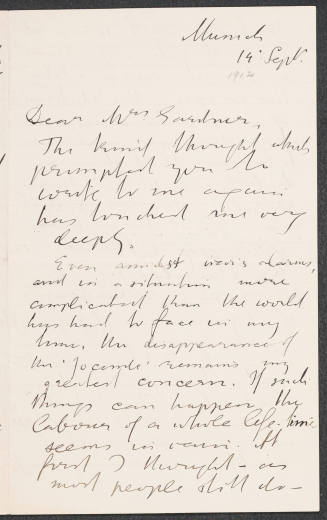 Munich
14 Sept.
1912
Dear Mrs Gardner,
The kind thought which
prompted you to
write to me again
has touched me very
deeply.
Even amidst war's alarms,
and in a situation more
complicated than the world
has had to face in my
time, the disappearance of
the 'Joconde' remains my
greatest concern. If such
things can happen the
labour of a whole life-time
seems in vain. At
first I thought - as
most people still do -